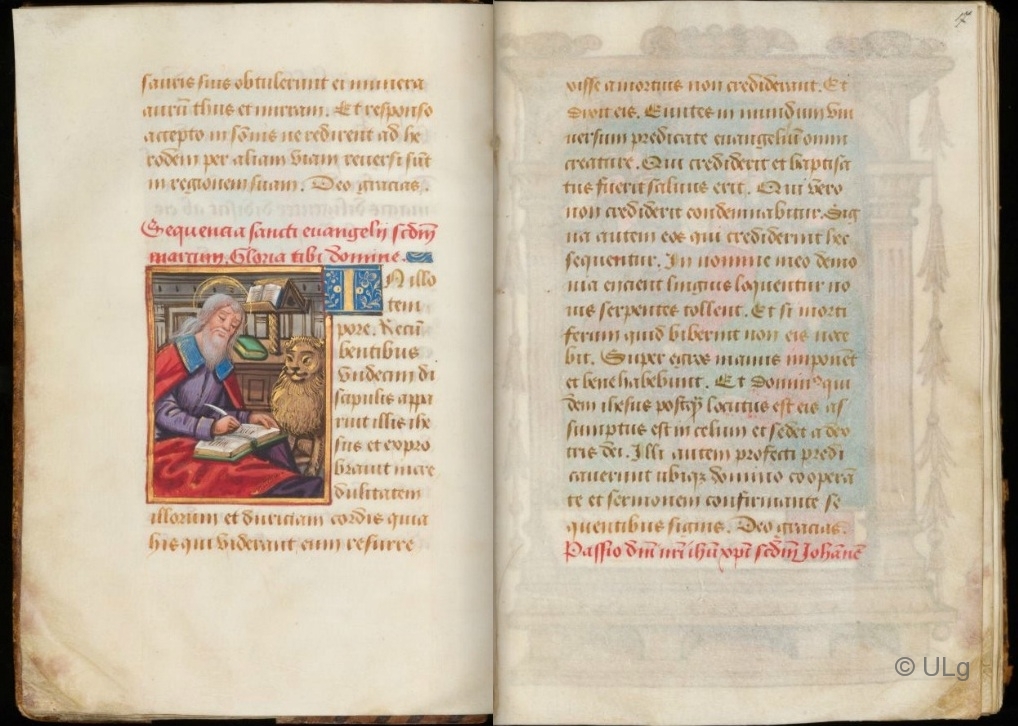 sauris suis obtulerunt ei munera
aurū thus et mirram. Et responso
accepto in sōnis ne redirent ad he
rodem per aliam viam reversi sūt
in regionem suam. Deo gracias.
Sequencia sancti euangelij scdm̄
marcum. Gloria tibi domine.
IN illo
tem
pore. Recū
bentibus
vndecim di
scipulis appa
ruit illis ihe
sus et expro
brauit incre
dulitatem
illorum et duriciam cordis quia
his qui viderant eum resurre
xisse a mortuis non crediderant. Et
dixit eis. Euntes in mundum vni
uersum predicate euangeliū omni
creature. Qui crediderit et baptisa
tus fuerit saluus erit. Qui vero
non crediderit condemnabitur. Sig
na autem eos qui crediderint hec
sequentur. In nomine meo demo
nia eicient linguis loquentur no
uis serpentes tollent. Et si morti
ferum quid biberint non eis noce
bit. Super egros manus imponēt
et bene habebunt. Et dominꝰ qui
dem ihesus postqȝ locutus est eis as
sumptus est in celum et sedet a dex
tris dei. Illi autem profecti predi
cauerunt ubiqȝ domino cooperā
te et sermonem confirmante se
quentibus signis. Deo gracias.
Passio dn̄i nr̄i ihū xp̄i scdm̄ Johannē
© ULg